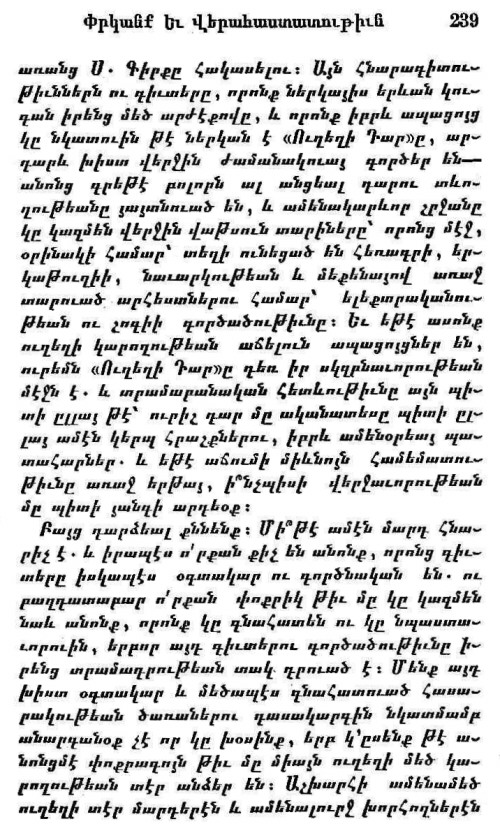 Փրկանք եւ Վերահաստատութիւն 239
առանց Ս. Գիրքը հակասելու։ Այն հնարագիտու-
թիւններն ու գիւտերը, որոնք ներկայիս երևան կու-
գան իրենց մեծ արժէքովը, և որոնք իբրև ապացոյց
կը նկատուին թէ ներկան է «Ուղեղի Դար»ը, ար-
դարև խիստ վերջին ժամանակուայ գործեր են—
անոնց գրեթէ բոլորն ալ անցեալ դարու տևո-
ղութեանը յայտնուած են, և ամենակարևոր շրջանը
կը կազմեն վերջին վաթսուն տարիները՝ որոնց մէջ,
օրինակի համար՝ տեղի ունեցած են հեռագրի, եր-
կաթուղիի, նաւարկութեան և մեքենայով առաջ
տարուած արհեստներու համար՝ ելեքտրականու-
թեան ու շոգիի գործածութիւնը։ Եւ եթէ ասոնք
ուղեղի կարողութեան աճելուն ապացոյցներ են,
ուրեմն «Ուղեղի Դար»ը դեռ իր սկզբնաւորութեան
մէջն է. և տրամաբանական հետևութիւնը այն պի-
տի ըլլայ թէ՝ ուրիշ դար մը ականատեսը պիտի ըլ-
լայ ամէն կերպ հրաշքներու, իբրև ամենօրեայ պա-
տահարներ. և եթէ աճումի միևնոյն համեմատու-
թիւնը առաջ երթայ, ի՞նչպիսի վերջաւորութեան
մը պիտի յանգի արդեօք։
Բայց դարձեալ քննենք։ Մի՞թէ ամէն մարդ հնա-
րիչ է. և իրապէս ո՛րքան քիչ են անոնք, որոնց գիւ-
տերը իսկապէս օգտակար ու գործնական են. ու
բաղդատաբար ո՛րքան փոքրիկ թիւ մը կը կազմեն
նաև անոնք, որոնք կը գնահատեն ու կը նպաստա-
ւորուին, երբոր այդ գիւտերու գործածութիւնը ի-
րենց տրամադրութեան տակ դրուած է։ Մենք այդ
խիստ օգտակար և մեծապէս գնահատուած հասա-
րակութեան ծառաներու դասակարգին նկատմամբ
անարգանօք չէ որ կը խօսինք, երբ կ՚ըսենք թէ ա-
նոնցմէ փոքրագոյն թիւ մը միայն ուղեղի մեծ կա-
րողութեան տէր անձեր են։ Աշխարհի ամենամեծ
ուղեղի տէր մարդերէն և ամենալուրջ խորհողներէն